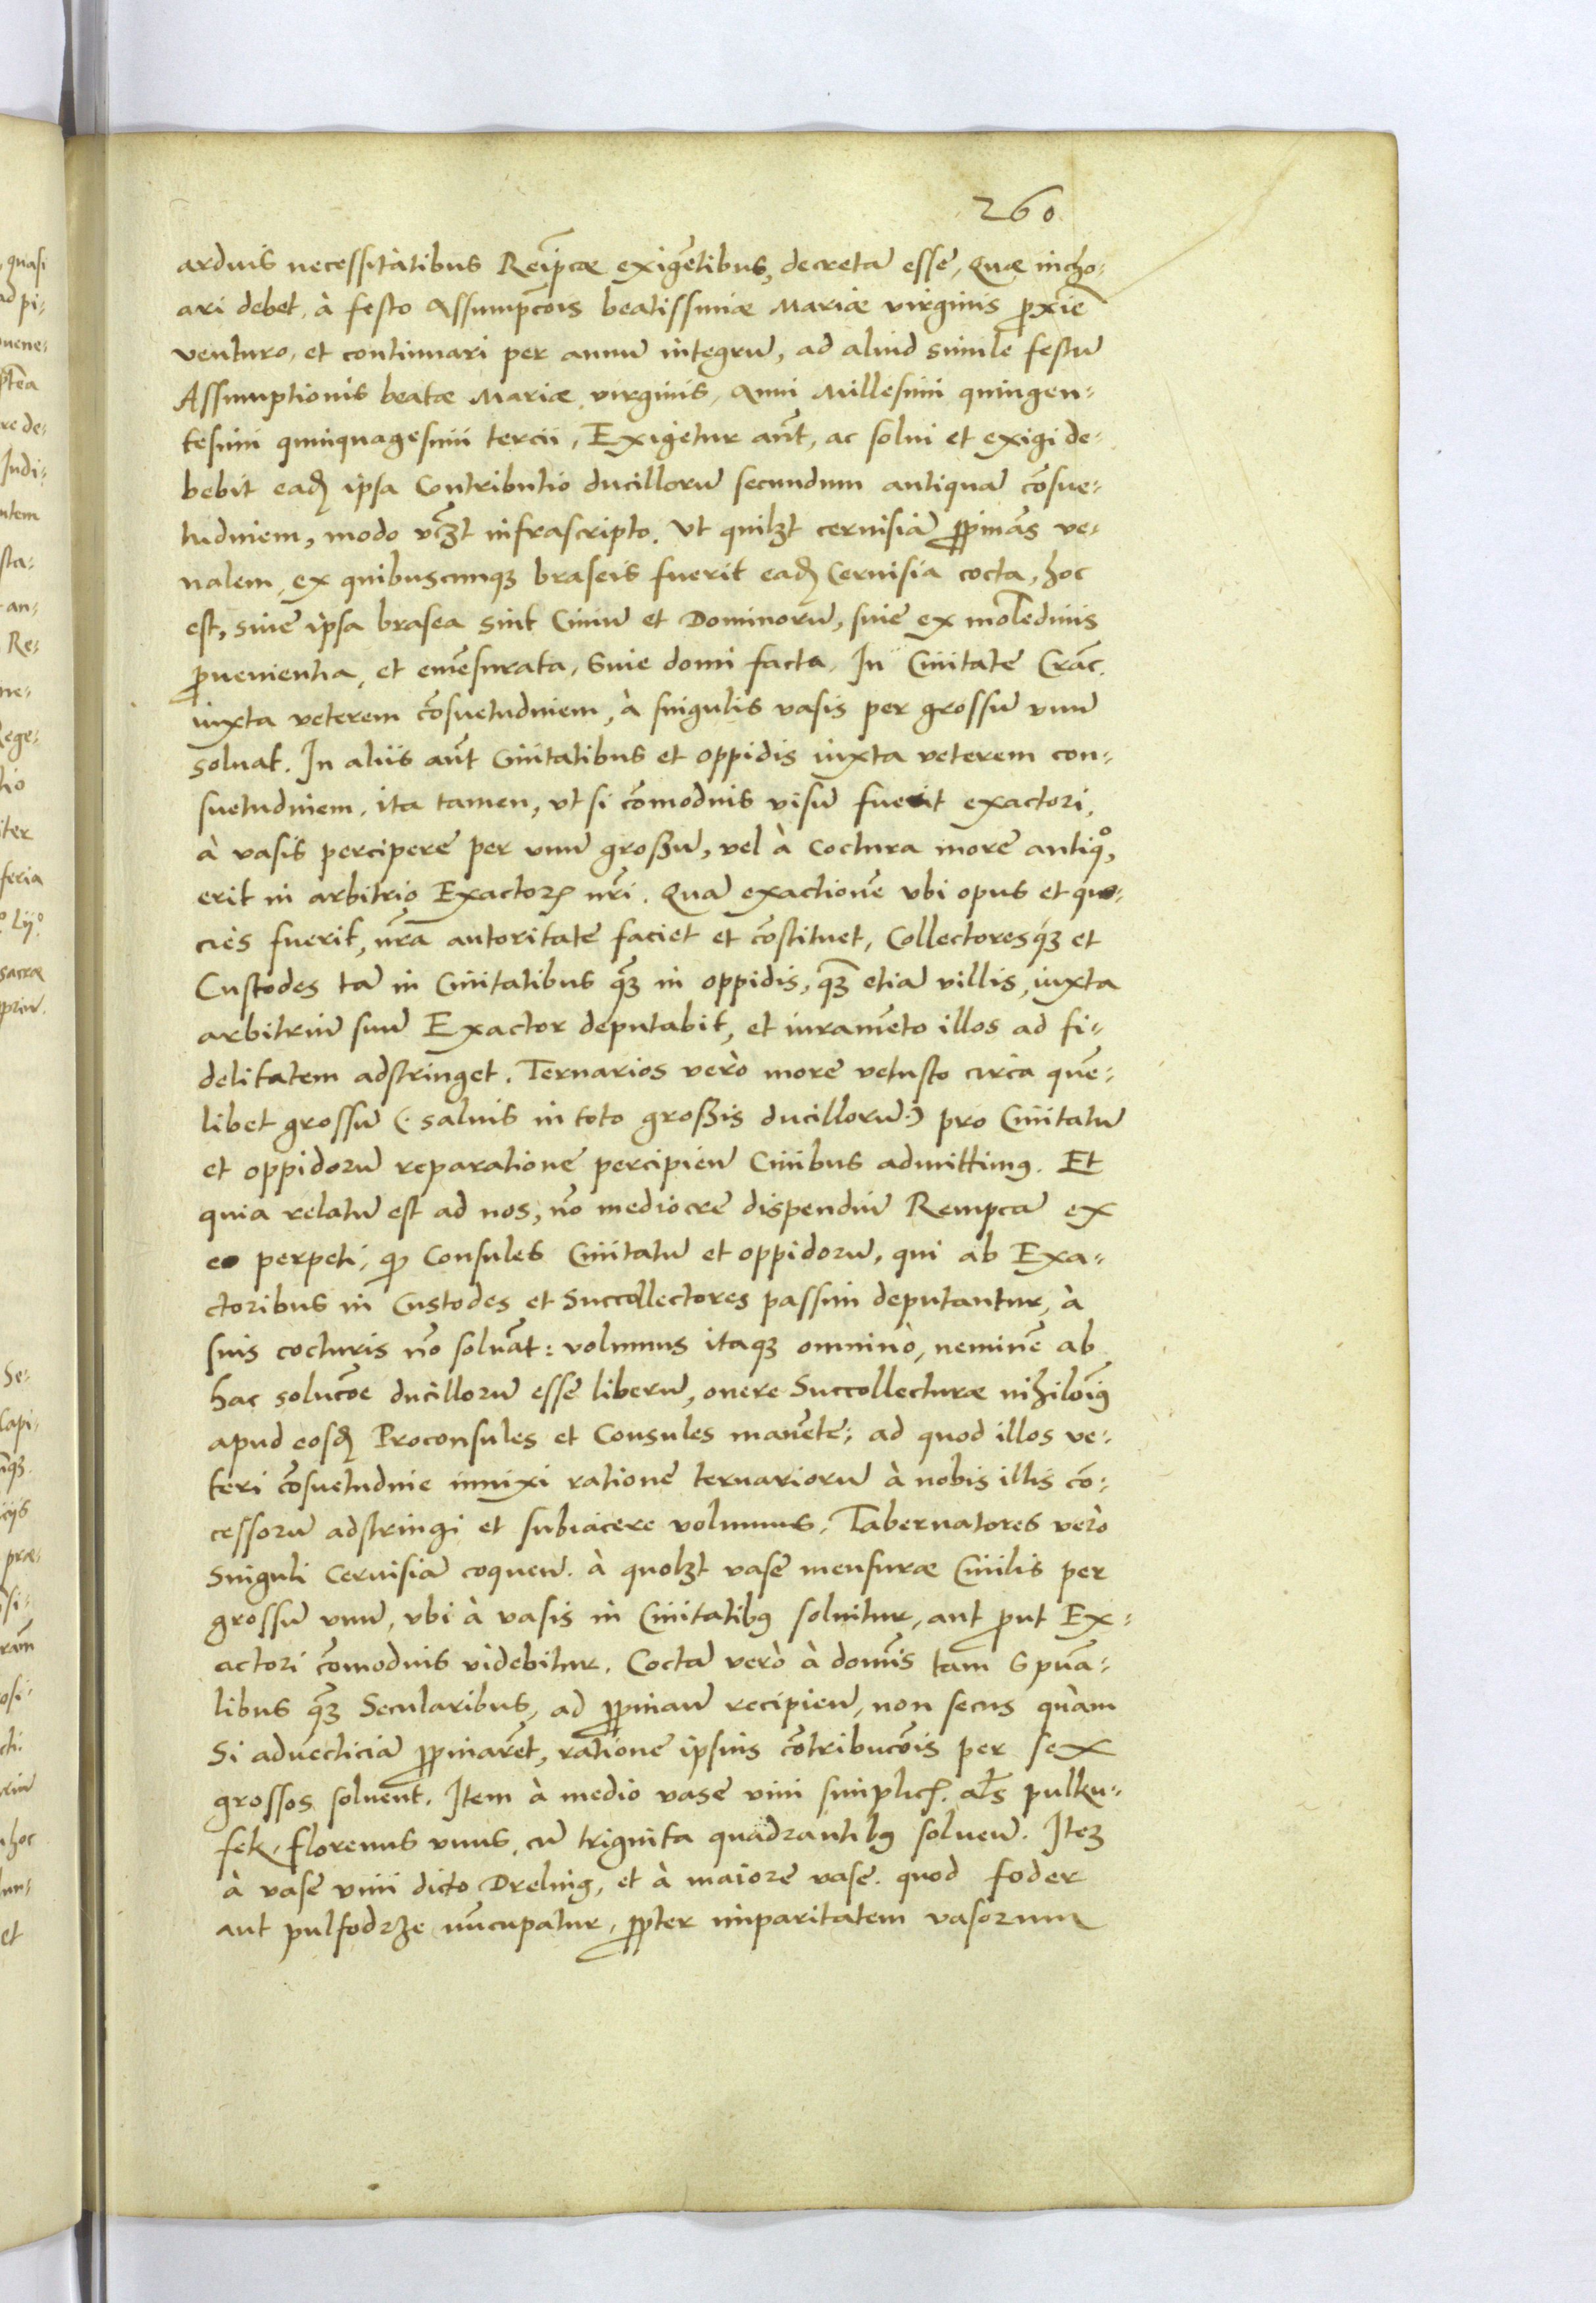 260
arduis necessitàtibus Reip̃cæ exigẽtibus, decretã esse, Quæ incho-
ari debet, à festo Assumpc̃ois beatissimæ Mariæ virginis ꝓxie
venturo, et continuari per annũ integrũ, ad aliud simile festũ
Assumptionis beatæ Mariæ virginis, Anni Millesimi quingen-
tesimi quinquagesimi tercii, Exigetur aũt, ac solui et exigi de-
bebit eadẽ ipsa Contributio ducillorũ secundum antiquã cõsue-
tudinem, modo vcꝫt infrascripto. Vt quilꝫt ceruisiã ꝓpinãs ve-
nalem, ex quibuscunqꝫ braseis fuerit eadẽ Ceruisia cocta, hoc
est, siue ipsa brasea sint Ciuiũ et Dominorũ, siue ex moledinis
ꝓuenientia, et emẽsurata, Siue domi facta, In Ciuitate Crac̃.
iuxta veterem cõsuetudinem, à singulis vasis per grossũ vnũ
soluat. In aliis aũt Ciuitatibus et oppidis iuxta veterem con-
suetudinem, ita tamen, vt si cõmodius visũ fuerit exactori,
à vasis percipere per vnũ großũ, vel à Coctura more antiqͦ,
erit in arbitrio Exactorꝭ nr̃i. Quã exactionẽ vbi opus et quo-
cies fuerit, nr̃a autoritate faciet et cõstituet, Collectoresqꝫ et
Custodes tã in Ciuitatibus qꝫ̃ in oppidis, qꝫ̃ etiã villis, iuxta
arbitriũ suũ Exactor deputabit, et iuramẽto illos ad fi-
delitatem adstringet. Ternarios verò more vetusto circa quẽ-
libet grossũ (saluis in toto großis ducillorũ) pro Ciuitatũ
et oppidorũ reparatione percipieñ Ciuibus admittimꝰ. Et
quia relatũ est ad nos, nõ mediocre dispendiũ Rempcã ex
eo perpeti, qꝫ Consules Ciuitatũ et oppidorũ, qui ab Exa-
ctoribus in Custodes et Succollectores passim deputantur, à
suis cocturis nõ soluãt: volumus itaqꝫ omninò, neminẽ ab
hac soluc̃oe ducillorũ esse liberũ, onere Succollecturæ nihilõiꝰ
apud eosdẽ Proconsules et Consules manẽte, ad quod illos ve-
teri cõsuetudine innixi ratione ternariorũ à nobis illis cõ-
cessorũ adstringi et subiacere volumus. Tabernatores verò
Singuli Ceruisiã coqueñ. à quolꝫt vase mensuræ Ciuilis per
grossũ vnũ, vbi à vasis in Ciuitatibꝰ soluitur, aut ꝓut Ex-
actori cõmodius videbitur. Coctã verò à domĩs tam Spũa-
libus qꝫ̃ Secularibus, ad ꝓpinañ recipieñ, non secus quàm
Si aduecticiã ꝓpinarẽt, ratione ipsius cõtribuc̃ois per sex
grossos soluent. Item à medio vase vini simplicꝭ. al̃s pulku-
fek, florenus vnus, cũ triginta quadrantibꝰ solueñ. Iteꝫ
à vase vini dicto Dreling, et à maiore vase, quod foder
aut pulfodrze nũcupatur, ꝓpter imparitatem vasorum